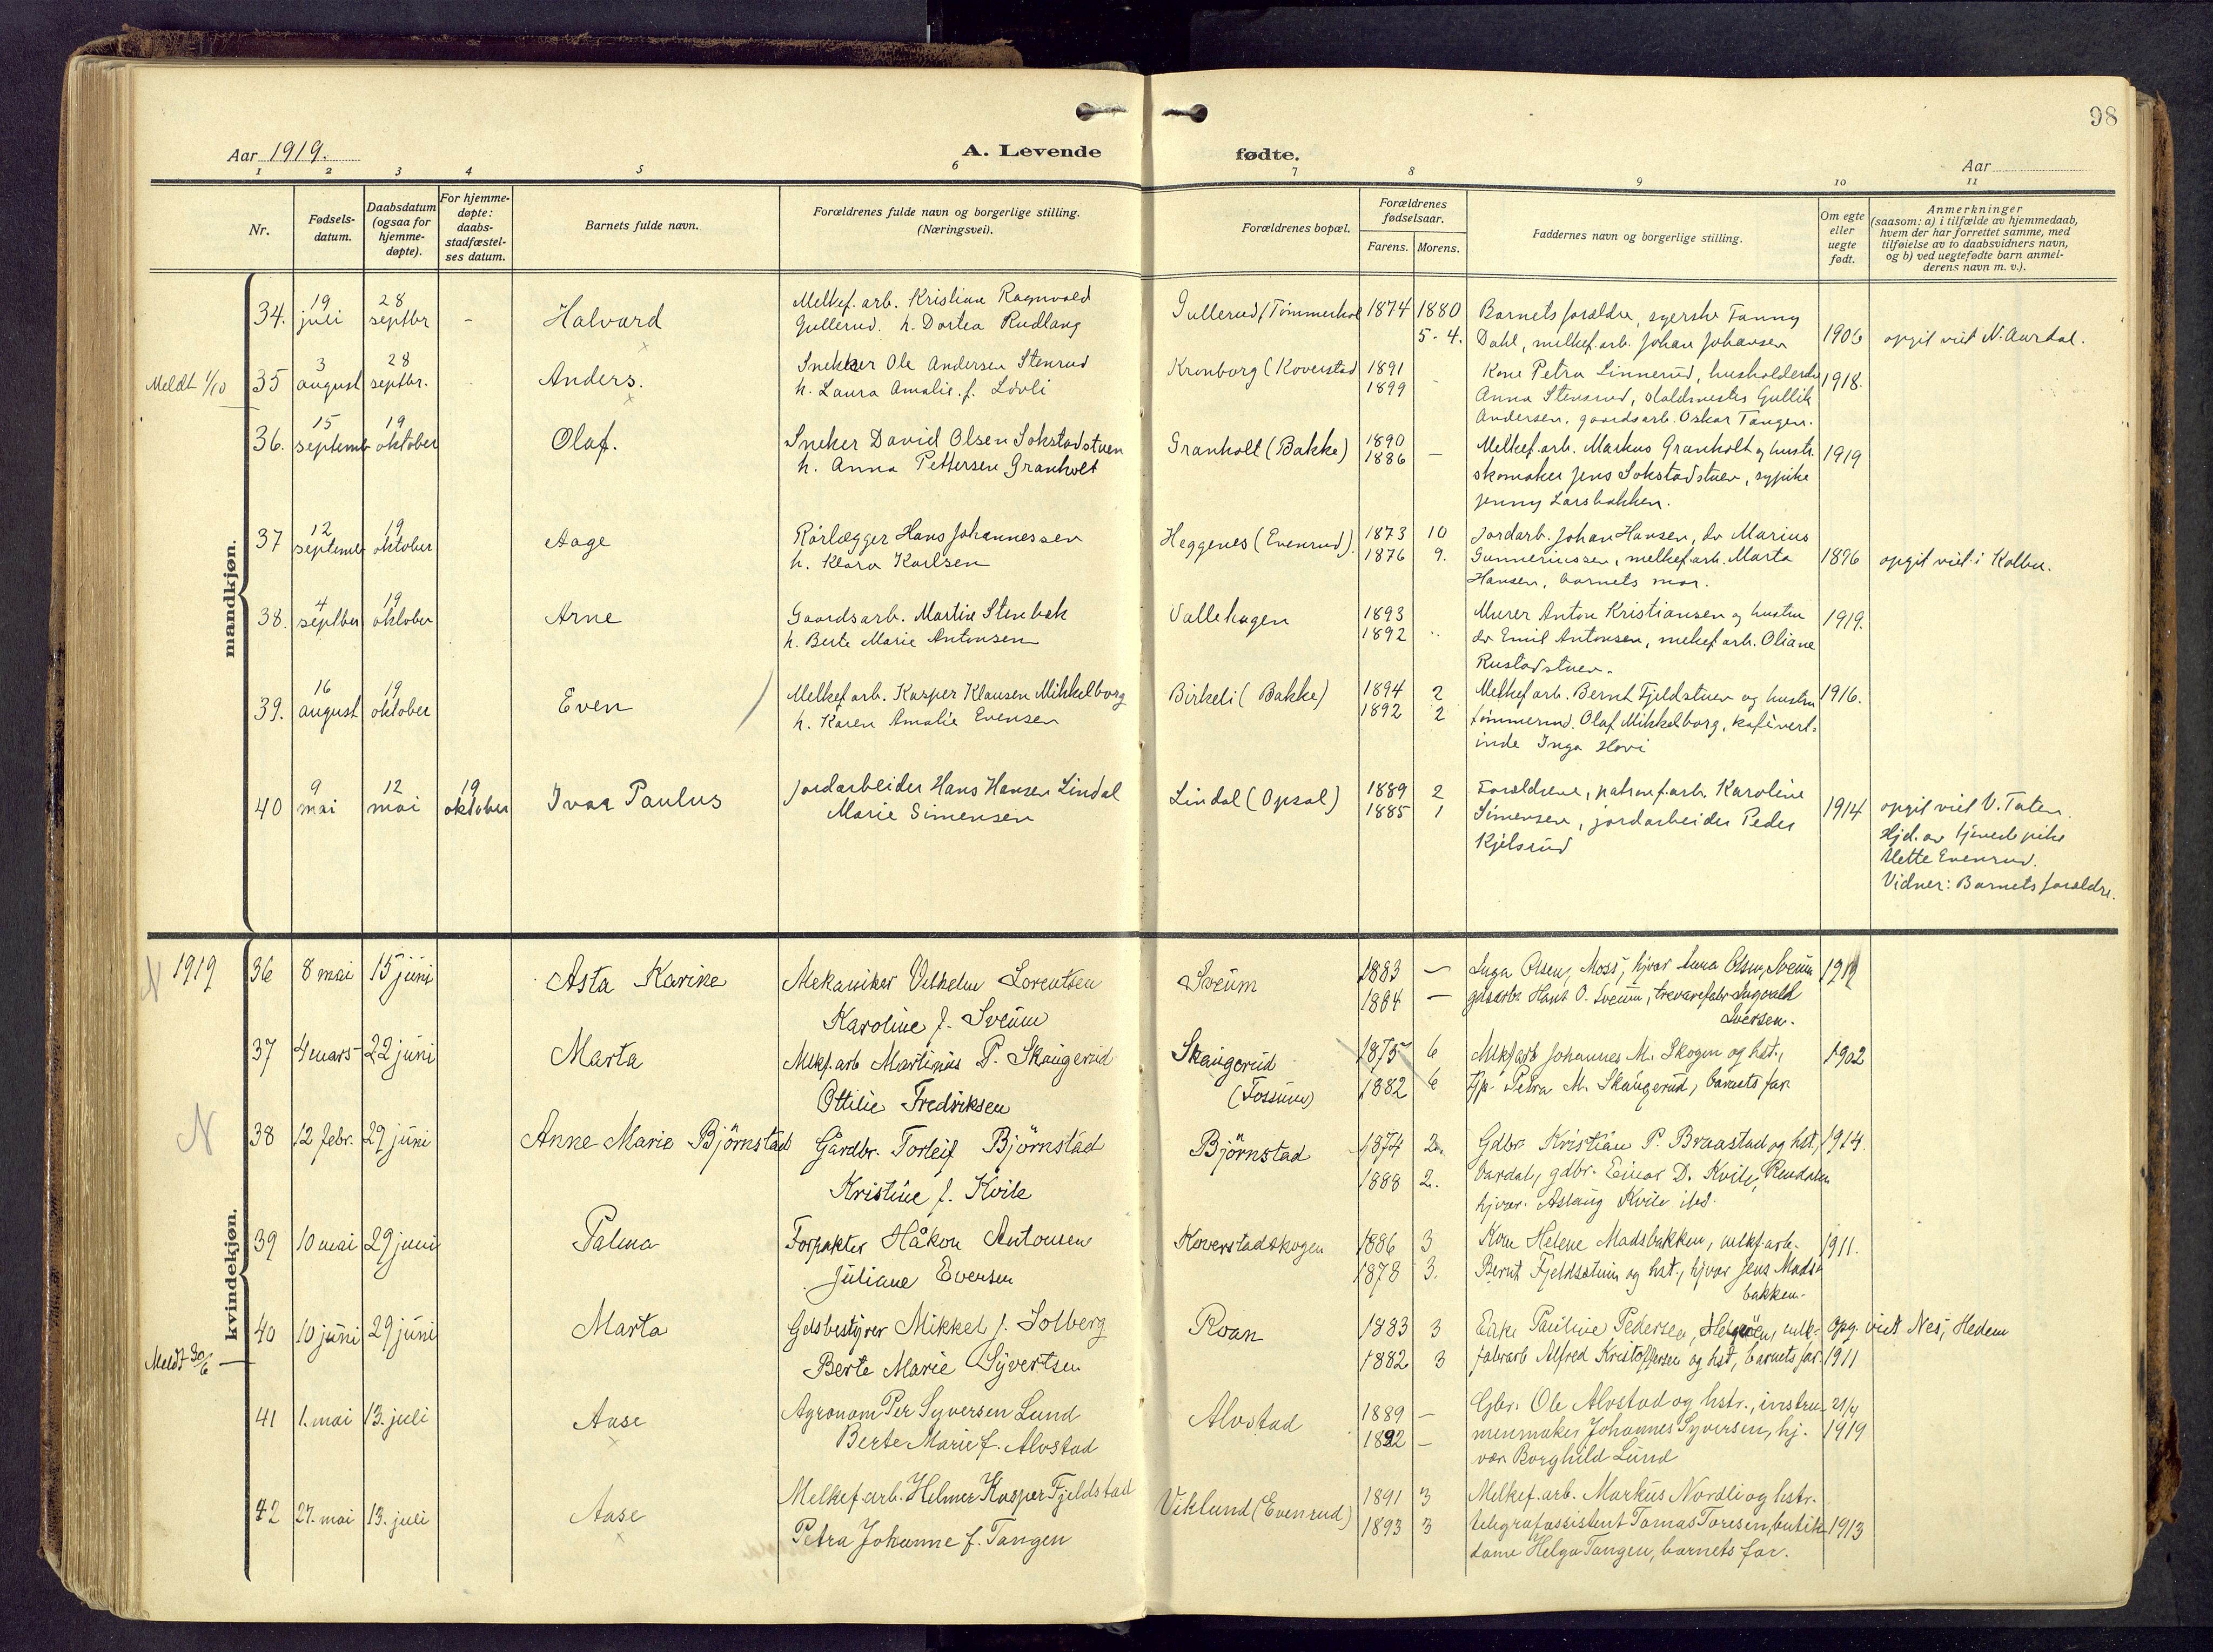 98
Aar 1919.
A. Levende fødte.
Aar
1 2 3 4 5 6 7 8 9 10 11
Nr.
Fødsels-
datum.
Daabsdatum
(ogsaa for
hjemme-
døpte).
For hjemme-
døpte:
daabs-
stadfæstel-
ses datum.
Barnets fulde navn.
Forældrenes fulde navn og borgerlige stilling.
(Næringsvei).
Forældrenes bopæl.
Forældrenes
fødselsaar.
Farens. Morens.
Faddernes navn og borgerlige stilling.
Om egte
eller
uegte
født.
Anmerkninger
(saasom: a) i tilfælde av hjemmedaab,
hvem der har forrettet samme, med
tilføielse av to daabsvidners navn,
og b) ved uegtefødte barn anmel-
derens navn m. v.).
mandkjøn.
34. 19 juli 28 septbr - Halvard
Melkef. arb. Kristian Ragnvald
Gullerud. h. Dortea Rudlang
1874 1880
5-4.
Barnets forældre, syerske Fanny
Dahl, melkef. arb. Johan Johansen
1906 opgit viet N. Aurdal.
Meldt 1/10
35 3 august 28 septbr. Anders.
Snekker Ole Andersen Stenrud
h. Laura Amalie f. Lövli
Kronborg (Koverstad
1891
1899 -
Kone Petra Linnerud, husholderske
Anna Stensrud, staldmester Gullik
Andersen, gaardsarb. Oskar Tangen.
1918.
36. 15 septemb 19 oktober Olaf.
Sneker David Olsen Sokstadstuen
h. Anna Pettersen Granholt
Granholt (Bakke)
1890
1886 -
Melkef. arb. Markus Granholt og hustr.
skomaker Jens Sokstadstuen, sypike
Jenny Larsbakken.
1919
37 12 septemb 19 oktober Aage
Rörlægger Hans Johannessen
h. Klara Karlsen
Heggenes (Evenrud).
1873 10
1876 9.
Jordarb. Johan Hansen, do Marius
Gunneriussen, melkef. arb. Marta
Hansen, barnets mor.
1896 opgit viet i Kolbu.
38. 4 septber 19 oktober Arne
Gaardsarb. Martin Stenbek
h. Berte Marie Antonsen
Vallehagen
1893
1892 ..
Murer Anton Kristiansen og hustru
do Emil Antonsen, melkef. arb. Oliane
Rustadstuen.
1919.
39. 16 august 19 oktober Even
Melkef. arb. Kasper Klausen Mikkelborg
h. Karen Amalie Evensen
Birkeli (Bakke)
1894 2
1892 2
Melkef arb. Bernt Fjeldstuen og hustru
Olaf Mikkelborg, kafévert-
inde Inga Hovi
1916.
40 9 mai 12 mai 19 oktober Ivar Paulus
Jordarbeider Hans Hansen Lindal
Marie Simensen
Lindal (Opsal)
1889 2
1885 1
Forældrene, patronf. arb. Karoline
Simensen, jordarbeider Peder
Kjelsrud
1914 opgit viet V. Toten.
Hjd. av tjenestepike
Mette Evenrud.
Vidner: Barnets forældre.
kvindekjøn.
N 1919
36 8 mai 15 juni Asta Karine
Mekaniker Vilhelm Lorentsen
Karoline f. Sveum
Sveum
1883 -
1884 -
Inga Olsen, Moss, hjvar Anna Olsen, Sveum
gdsarb. Hans O. Sveum, trevarefabr Ingvald
Iversen.
37 4 mars 22 juni Marta
Mlkf. arb Martinus P. Skaugerud
Ottilie Fredriksen
Skaugerud
(Fossum)
1875 6
1882 6
Mlkf arb Johannes M. Skogen og hst.,
Petra M. Skaugerud, barnets far
1902
N
38 12 febr. 29 juni Anne Marie Björnstad
Gårdbr. Torleif Björnstad
Kristine f. Kvile
Björnstad
1874 2.
1888 2.
Gdbr Kristian P. Braastad og hst.,
Vardal, gdbr. Einar D. Kvile, Rendalen
hjvar. Aslaug Kvile ibd.
1914.
39 10 mai 29 juni Palma
Forpakter Håkon Antonsen
Juliane Eversen
Koverstadskogen
1886 3
1878 3.
Kone Helene Madsbakken, mlkf arb.
Bernt Fjeldstuen og hst., hjvar Jens Mads-
bakken.
1911.
40 10 juni 29 juni Marta
Gdsbestyrer Mikkel J. Solberg
Berte Marie Syvertsen
Roan
1883 3
1882 3
Pauline Pedersen, Helgøen, mlk-
fabrarb Alfred Kristoffersen og hst, barnets far
Opg. viet Nes, Hedem
1911
Meldt 30/6
41 1. mai 13. juli Aase
Agronom Per Syversen Lund
Berte Marie f. Alvstad
Alvstad
1889 -
1892 -
Gbr. Ole Alvstad og hstr., instru-
menmaker Johannes Syversen, hj.
vær Borghild Lund
21/4
1919
42 27. mai 13. juli Aase
Melkef. arb. Helmer Kasper Fjeldstad
Petra Johanne f. Tangen
Viklund (Evenrud)
1891 3
1893 3
Melkef. arb. Markus Nordli og hstr.
telegrafassistent Tomas Toresen, butik-
dame Helga Tangen, barnets far.
1913